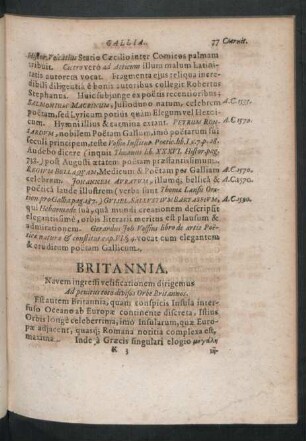 GALLIA. 77 Claruit.
Histor. Volcatius Statio Cæcilio inter Comicos palmam
tribuit. Cicero ad Atticum illum malum Latini-
tatis autorem vocat. Fragmenta ejus reliqua incre-
dibili diligentiâ è bonis autoribus collegit Robertus
Stephanus. Huic subjunge ex poëtis recentioribus:
SALMONIUM MACRINUM, Juliodunô natum, celebrem A.C.1535.
poëtam, sed Lyricum potiùs quàm Elegum vel Heroi-
cum. Hymni illius & carmina extant. PETRUM RON- A.C.1570.
SARDUM, nobilem Poëtam Gallum, imò poëtarum sui
seculi principem, teste Vossio Institut. Poëtic. lib. 1. c. 7. p. 28.
Audebo dicere (inquit Thuanus lib. XXXVI. Histor. pag.
752.) post Augusti ætatem poëtam præstantissimum.
REMIGIUM BELLAQUAM, Medicum & Poëtam per Galliam A.C.1570.
celebrem. JOHANNEM AURATUM, illumq; bellicâ & A.C.1570.
poëticâ laude illustrem (verba sunt Thomæ Lansii Orat-
tion. pro Gallia pag. 147.) GUILIEL. SALUSTIUM BARTASSIUM, A.C.1590.
qui Hebdomade suâ, quâ mundi creationem descripsit
eleganti opere, orbis literarii meritus est plausum &
admirationem. Gerardus Joh. Vossius libro de artis Poë-
ticæ natura & constitut. cap. VI. § 4. vocat eum elegantem
& eruditum poëtam Gallicum.
BRITANNIA.
Novem ingressi velificationem dirigemus
Ad penitus toto divisos Orbe Britannos.
Est autem Britannia, quam conspicis Insula inter-
fuso Oceano ab Europæ continente discreta, istius
Orbis longè celeberrima, imo Insularum, quæ Euro-
pæ adjacent, quasq; Romana notitia complexa est,
maxima. Inde à Græcis singulari elogio μεγάλη
K 3